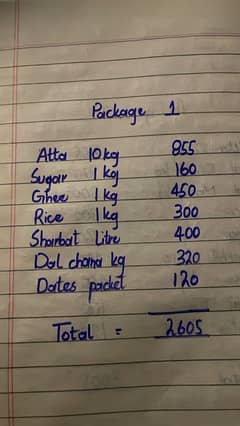 Package 1
Atta 10kg 855
Sugar 1 kg 160
Ghee 1kg 450
Rice 1kg 300
Sharbat Litre 400
Dal chana kg 320
Dates packet 120
Total = 2605